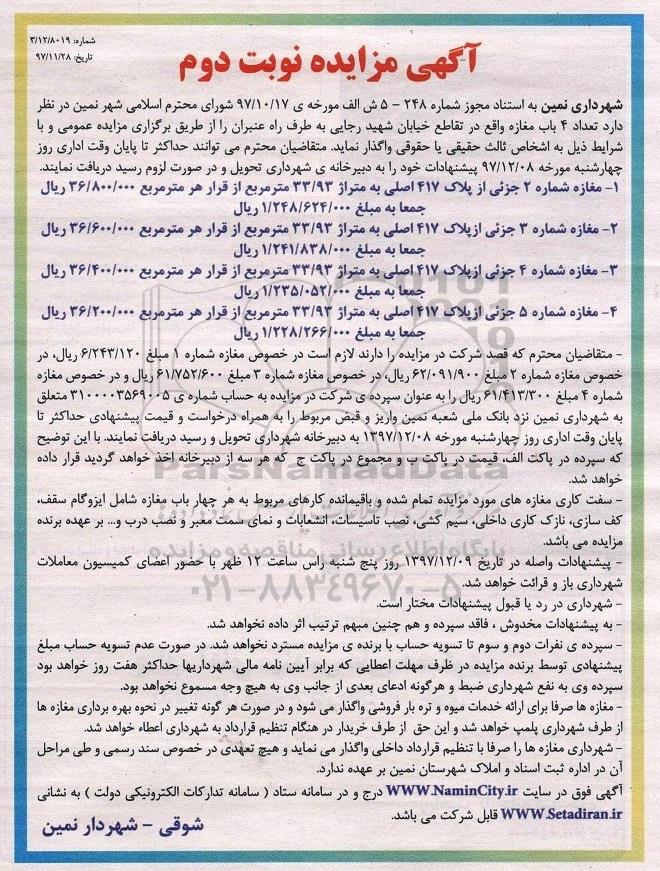 شماره: ۳/۱۲/۸۰۱۹
تاریخ: ۹۷/۱۱/۲۸
آگهی مزایده نوبت دوم
شهرداری نمین به استناد مجوز شماره ۲۴۸ – ۵ ش الف مورخه ی ۹۷/۱۰/۱۷ شورای محترم اسلامی شهر نمین در نظر
دارد تعداد ۴ باب مغازه واقع در تقاطع خیابان شهید رجایی به طرف راه عنبران را از طریق برگزاری مزایده عمومی و با
شرایط ذیل به اشخاص ثالث حقیقی یا حقوقی واگذار نماید. متقاضیان محترم می توانند حداکثر تا پایان وقت اداری روز
چهارشنبه مورخه ۹۷/۱۲/۰۸ پیشنهادات خود را به دبیرخانه ی شهرداری تحویل و در صورت لزوم رسید دریافت نمایند.
۱– مغازه شماره ۲ جزئی از پلاک ۴۱۷ اصلی به متراژ ۳۳/۹۳ مترمربع از قرار هر مترمربع ۳۶/۸۰۰/۰۰۰ ریال
جمعا به مبلغ ۱/۲۴۸/۶۲۴/۰۰۰ ریال
۲– مغازه شماره ۳ جزئی ازپلاک ۴۱۷ اصلی به متراژ ۳۳/۹۳ مترمربع از قرار هر مترمربع ۳۶/۶۰۰/۰۰۰ ریال
جمعا به مبلغ ۱/۲۴۱/۸۳۸/۰۰۰ ریال
۳– مغازه شماره ۴ جزئی ازپلاک ۴۱۷ اصلی به متراژ ۳۳/۹۳ مترمربع از قرار هر مترمربع ۳۶/۴۰۰/۰۰۰ ریال
جمعا به مبلغ ۱/۲۳۵/۰۵۲/۰۰۰ ریال
۴– مغازه شماره ۵ جزئی ازپلاک ۴۱۷ اصلی به متراژ ۳۳/۹۳ مترمربع از قرار هر مترمربع ۳۶/۲۰۰/۰۰۰ ریال
جمعا به مبلغ ۱/۲۲۸/۲۶۶/۰۰۰ ریال
– متقاضیان محترم که قصد شرکت در مزایده را دارند لازم است در خصوص مغازه شماره ۱ مبلغ ۶/۲۴۳/۱۲۰ ریال، در
خصوص مغازه شماره ۲ مبلغ ۶۲/۰۹۱/۹۰۰ ریال، در خصوص مغازه شماره ۳ مبلغ ۶۱/۷۵۲/۶۰۰ ریال و در خصوص مغازه
شماره ۴ مبلغ ۶۱/۴۱۳/۳۰۰ ریال را به عنوان سپرده ی شرکت در مزایده به حساب شماره ی ۳۱۰۰۰۰۳۵۶۹۰۰۵ متعلق
به شهرداری نمین نزد بانک ملی شعبه نمین واریز و قبض مربوط را به همراه درخواست و قیمت پیشنهادی حداکثر تا
پایان وقت اداری روز چهارشنبه مورخه ۱۳۹۷/۱۲/۰۸ به دبیرخانه شهرداری تحویل و رسید دریافت نمایند. با این توضیح
که سپرده در پاکت الف، قیمت در پاکت ب و مجموع در پاکت ج که هر سه از دبیرخانه اخذ خواهد گردید قرار داده
خواهد شد.
– سفت کاری مغازه های مورد مزایده تمام شده و باقیمانده کارهای مربوط به هر چهار باب مغازه شامل ایزوگام سقف،
کف سازی، نازک کاری داخلی، سیم کشی، نصب تاسیسات، انشعابات و نمای سمت معبر و نصب درب و... بر عهده برنده
مزایده می باشد.
– پیشنهادات واصله در تاریخ ۱۳۹۷/۱۲/۰۹ روز پنج شنبه راس ساعت ۱۲ ظهر با حضور اعضای کمیسیون معاملات
شهرداری باز و قرائت خواهد شد.
– شهرداری در رد یا قبول پیشنهادات مختار است.
– به پیشنهادات مخدوش ، فاقد سپرده و هم چنین مبهم ترتیب اثر داده نخواهد شد.
– سپرده ی نفرات دوم و سوم تا تسویه حساب با برنده ی مزایده مسترد نخواهد شد. در صورت عدم تسویه حساب مبلغ
پیشنهادی توسط برنده مزایده در ظرف مهلت اعطایی که برابر آیین نامه مالی شهرداریها حداکثر هفت روز خواهد بود
سپرده وی به نفع شهرداری ضبط و هرگونه ادعای بعدی از جانب وی به هیچ وجه مسموع نخواهد بود.
– مغازه ها صرفا برای ارائه خدمات میوه و تره بار فروشی واگذار می شود و در صورت هر گونه تغییر در نحوه بهره برداری مغازه ها
از طرف شهرداری پلمپ خواهد شد و این حق از طرف خریدار در هنگام تنظیم قرارداد به شهرداری اعطاء خواهد شد.
– شهرداری مغازه ها را صرفا با تنظیم قرارداد داخلی واگذار می نماید و هیچ تعهدی در خصوص سند رسمی و طی مراحل
آن در اداره ثبت اسناد و املاک شهرستان نمین بر عهده ندارد.
آگهی فوق در سایت WWW.NaminCity.ir درج و در سامانه ستاد ( سامانه تدارکات الکترونیکی دولت ) به نشانی
WWW.Setadiran.ir قابل شرکت می باشد.
شوقی – شهردار نمین
ParsNamadData
پایگاه اطلاع رسانی مناقصه و مزایده
۰۲۱-۸۸۳۴۹۶۷۰-۵